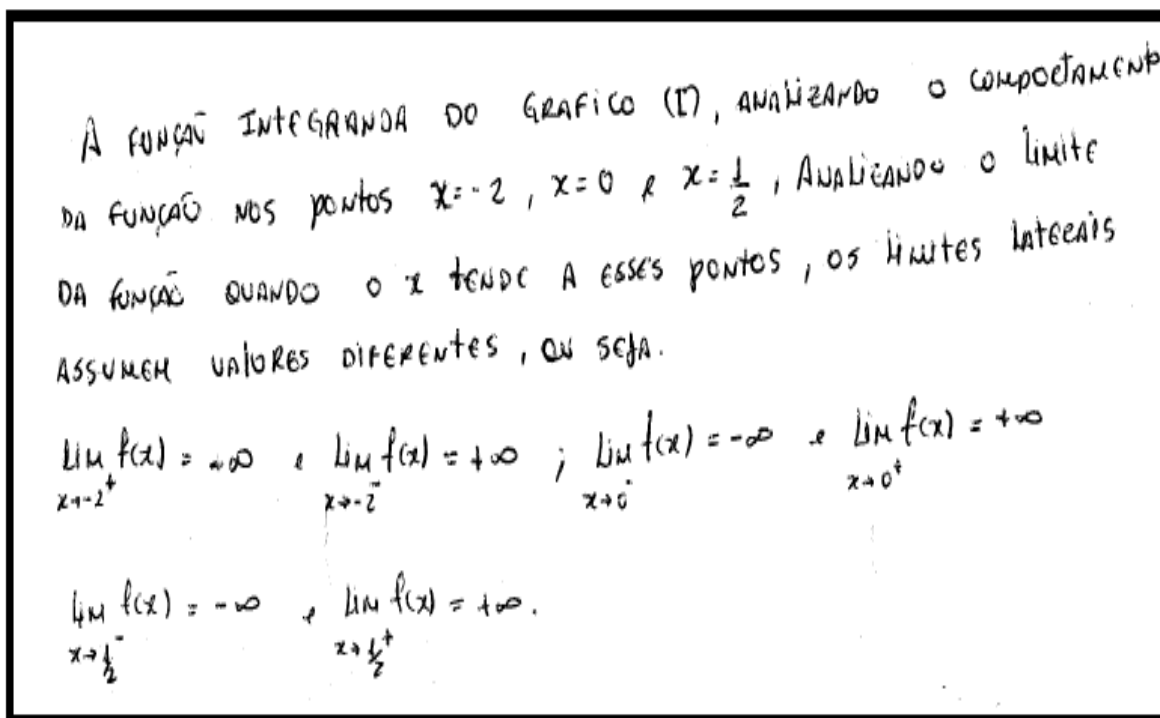 A FUNÇÃO INTEGRANDA DO GRAFICO (I), ANALIZANDO O COMPORTAMENTO
DA FUNÇÃO NOS PONTOS x=-2, x=0 e x=1/2, ANALIZANDO O LIMITE
DA FUNÇÃO QUANDO O x TENDE A ESSES PONTOS, OS LIMITES LATERAIS
ASSUMEM VALORES DIFERENTES, OU SEJA.
Lim f(x) = -∞ e Lim f(x) = +∞ ; Lim f(x) = -∞ e Lim f(x) = +∞
x→-2⁺ x→-2⁻ x→0⁻ x→0⁺
Lim f(x) = -∞ e Lim f(x) = +∞.
x→1/2⁻ x→1/2⁺